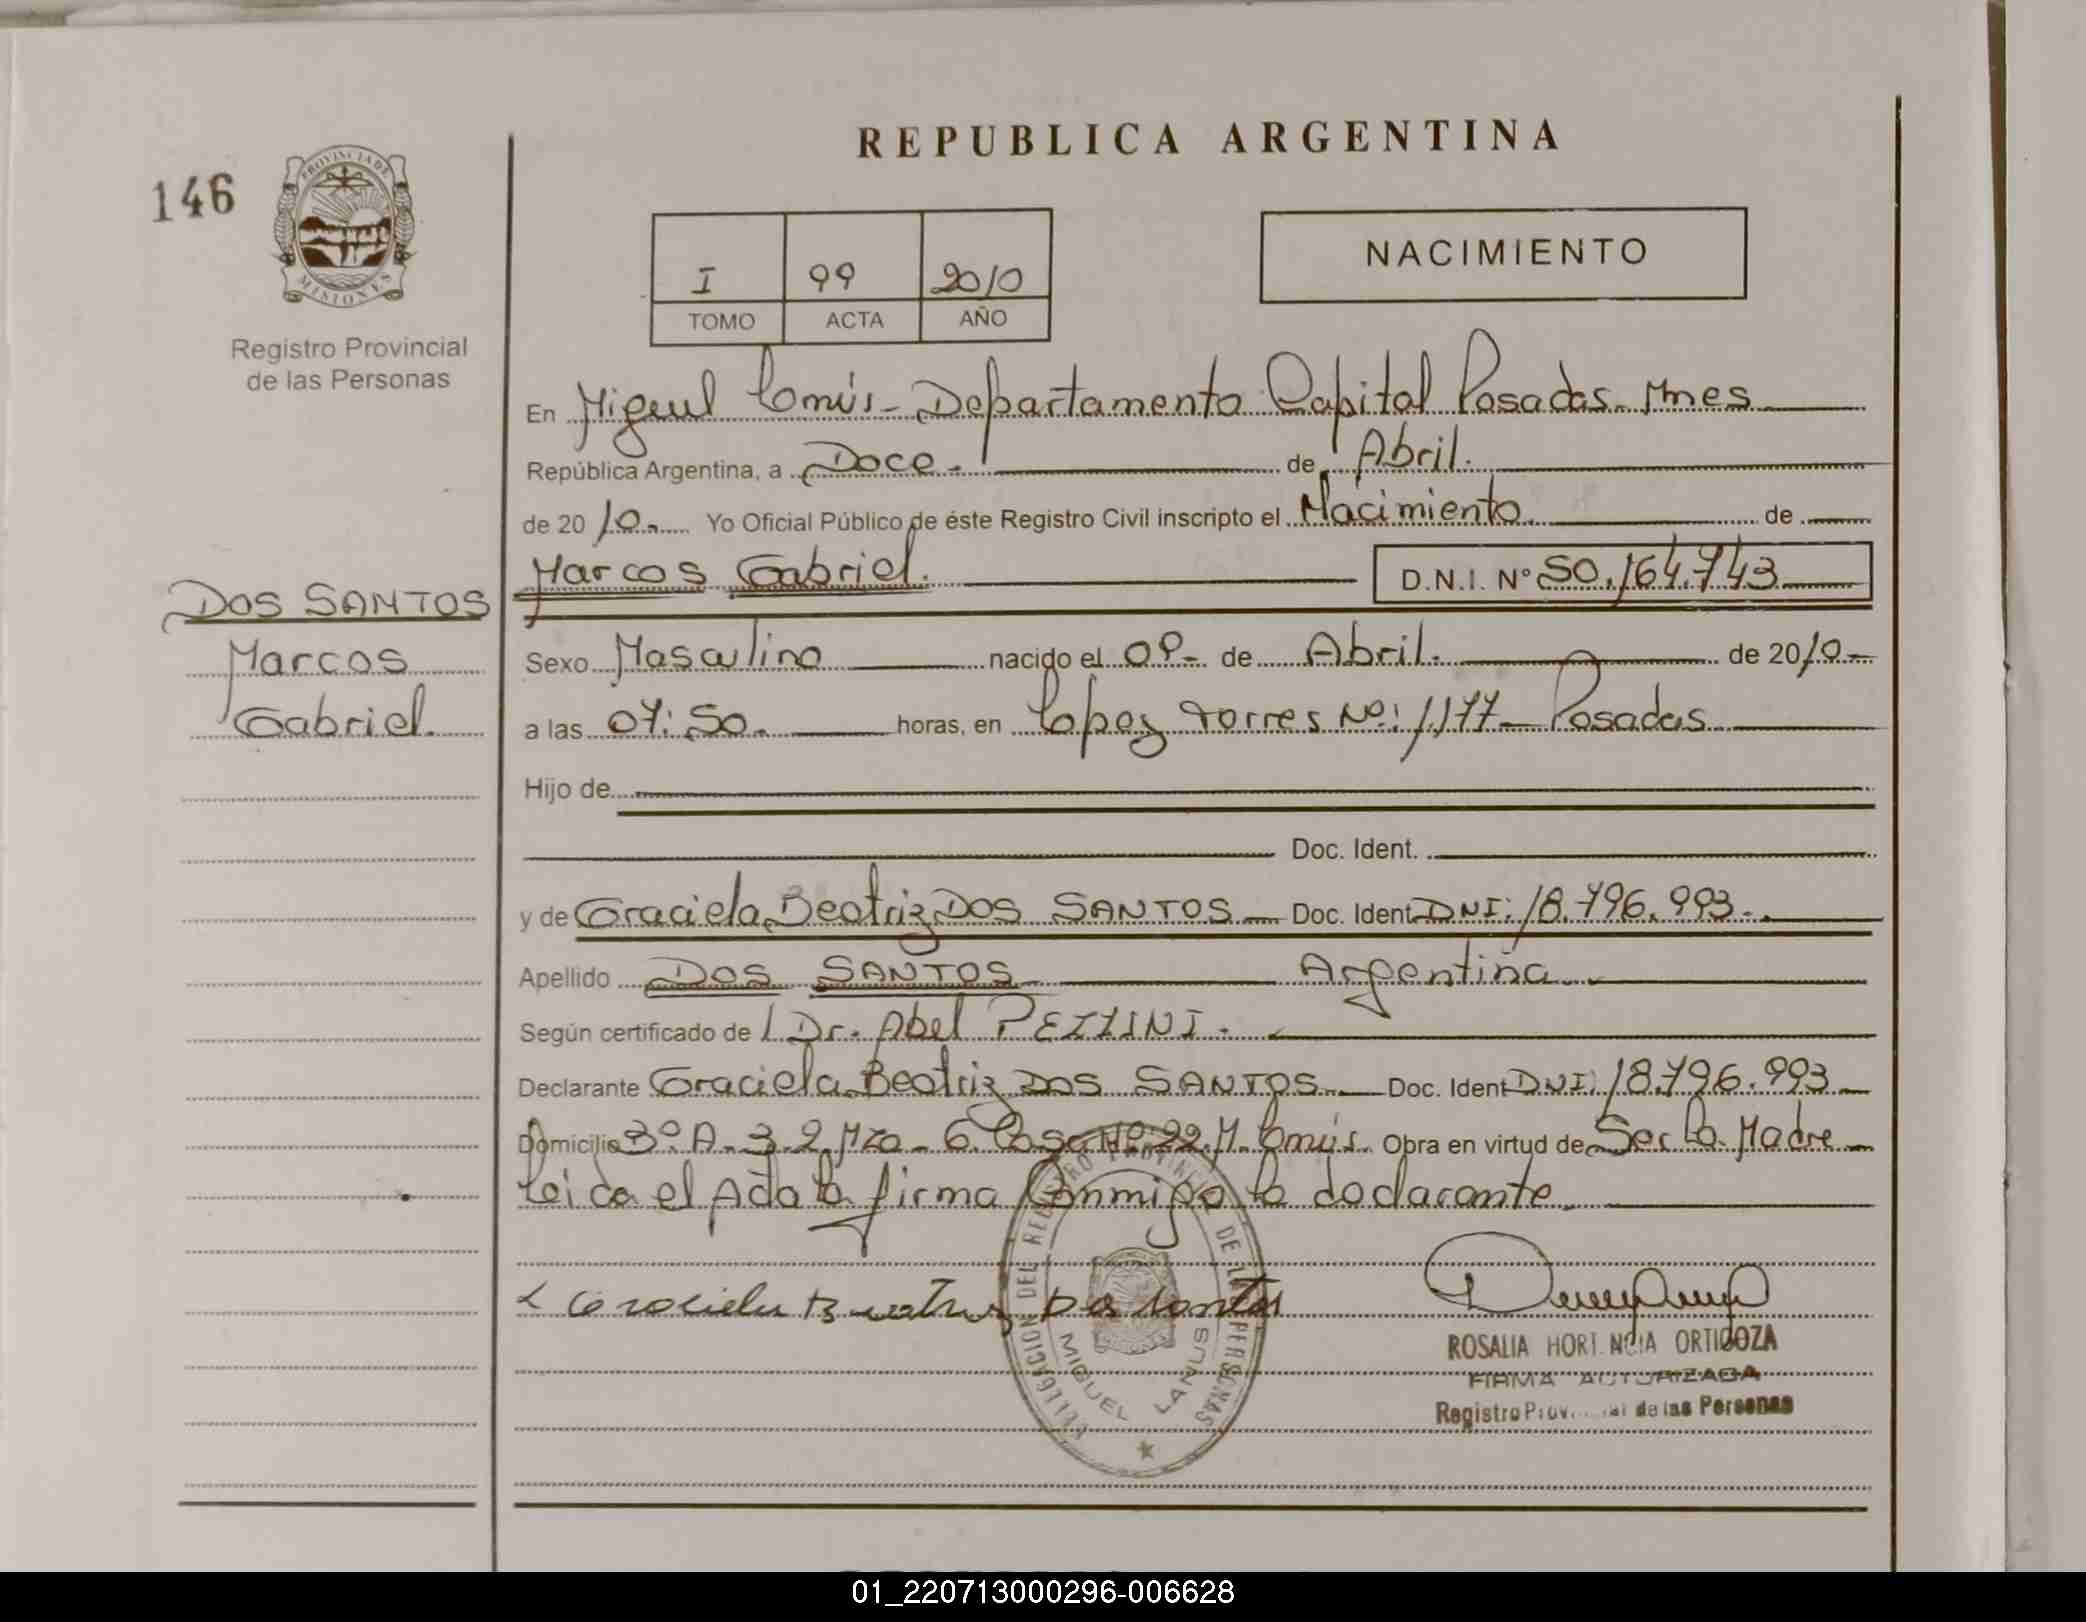 REPUBLICA ARGENTINA
146
PROVINCIA DE
MISIONES
Registro Provincial
de las Personas
NACIMIENTO
I 99 2010
TOMO ACTA AÑO
En Miguel Lanús - Departamento Capital Posadas. Mnes
República Argentina, a Doce. de Abril.
de 2010. Yo Oficial Público de éste Registro Civil inscripto el Nacimiento de
Marcos Gabriel. D.N.I. Nº 50.164.743
DOS SANTOS
Marcos
Gabriel.
Sexo Masculino nacido el de Abril. de 2010
a las 07:50. horas, en Lopez Torres Nº: 1177 - Posadas
Hijo de
Doc. Ident.
y de Graciela Beatriz DOS SANTOS Doc. Ident DNI: 18.796.993.
Apellido DOS SANTOS Argentina.
Según certificado de Dr. Abel PEZZINI.
Declarante Graciela Beatriz DOS SANTOS Doc. Ident DNI: 18.796.993
Domicilio 3º.A-3.2 Mza-6. Casa Nº 22. M. Lanús. Obra en virtud de Ser La Madre
Leida el Acta la firma Conmigo la declarante
Graciela Beatriz Dos Santos
DELEGACION DEL REGISTRO PROVINCIAL DE LAS PERSONAS
MIGUEL LANUS
ROSALIA HORTENCIA ORTIGOZA
FIRMA AUTORIZADA
Registro Provincial de las Personas
01_220713000296-006628